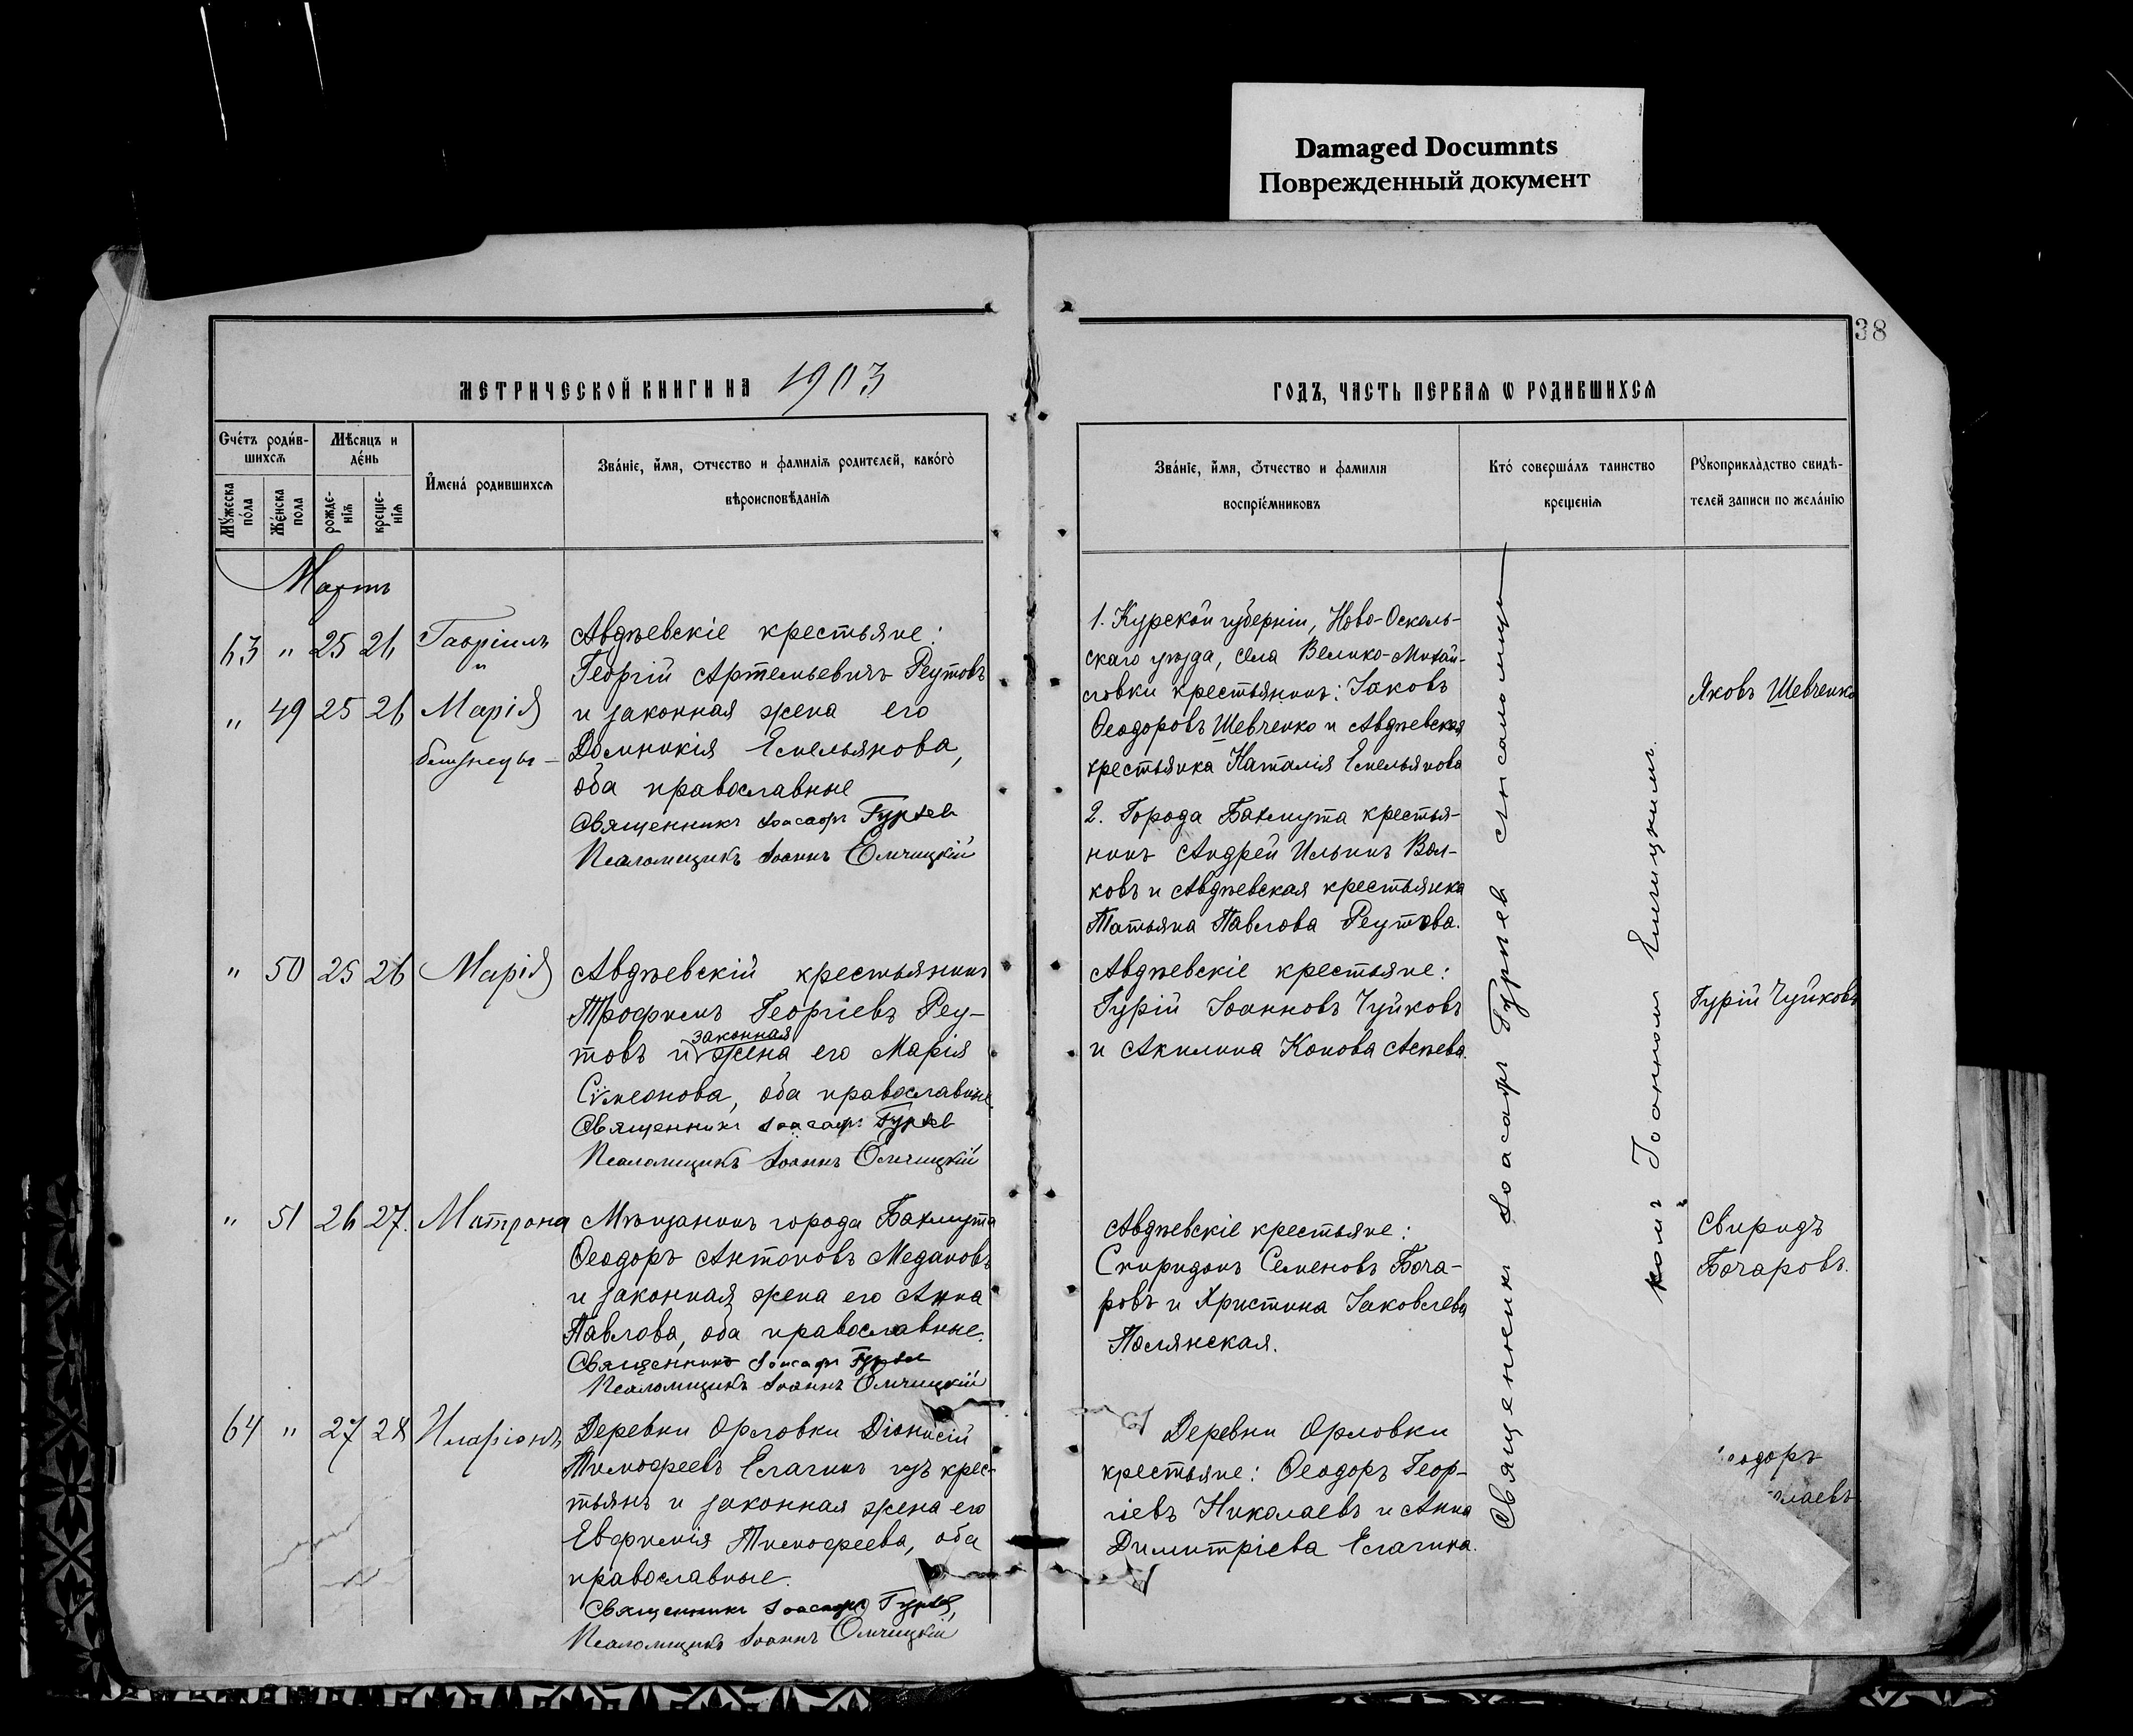 Damaged Documnts
Поврежденный документ
38
МЕТРИЧЕСКОЙ КНИГИ НА 1903
ГОДЪ, ЧАСТЬ ПЕРВАЯ Ѡ РОДИВШИХСЯ
Счетъ родив-
шихся
Мѣсяцъ и
день
Мужеска
пола
Женска
пола
рожде-
нія
креще-
нія
Имена родившихся
Званіе, имя, отчество и фамилія родителей, какого
вѣроисповѣданія
Званіе, имя, отчество и фамилія
воспріемниковъ
Кто совершалъ таинство
крещенія
Рукоприкладство свидѣ-
телей записи по желанію
Мартъ
63 " 25 26 Гавріилъ
и
" 49 25 26 Марія
близнецы
Авдѣевскіе крестьяне:
Георгій Артемьевичъ Реутовъ
и законная жена его
Домникія Емельянова,
оба православные
Священникъ Іоасафъ Гурьев
Псаломщикъ Іоаннъ Еличицкій
1. Курской губерніи, Ново-Осколь-
скаго уѣзда, села Велико-Михай-
ловки крестьянинъ: Іаковъ
Ѳеодоровъ Шевченко и Авдѣевская
крестьянка Наталія Емельянова
2. Города Бахмута крестья-
нинъ Андрей Ильинъ Вол-
ковъ и Авдѣевская крестьянка
Татьяна Павлова Реутова.
Яковъ Шевченко
" 50 25 26 Марія
Авдѣевскій крестьянинъ
Трофимъ Георгіевъ Реу-
законная
товъ и жена его Марія
Сѵмеонова, оба православные.
Священникъ Іоасафъ Гурьев
Псаломщикъ Іоаннъ Еличицкій
Авдѣевскіе крестьяне:
Гурій Іоанновъ Чуйковъ
и Акилина Конова Асѣева.
Гурій Чуйковъ
" 51 26 27. Матрона
Мѣщанинъ города Бахмута
Ѳеодоръ Антоновъ Медановъ
и законная жена его Анна
Павлова, оба православные.
Священникъ Іоасафъ Гурьев
Псаломщикъ Іоаннъ Еличицкій
Авдѣевскіе крестьяне:
Спиридонъ Семеновъ Боча-
ровъ и Христина Іаковлева
Полянская.
Свиридъ
Бочаровъ.
64 " 27 28 Иларіонъ
Деревни Орловки Діонисій
Тимофеевъ Елагинъ изъ крес-
тьянъ и законная жена его
Евфимія Тимофеева, оба
православные.
Священникъ Іоасафъ Гурьев,
Псаломщикъ Іоаннъ Еличицкій
Деревни Орловки
крестьяне: Ѳеодоръ Геор-
гіевъ Николаевъ и Анна
Димитріева Елагина.
еодоръ
лаевъ
Священникъ Іоасафъ Гурьев съ псаломщи-
комъ Іоанномъ Еличицкимъ.